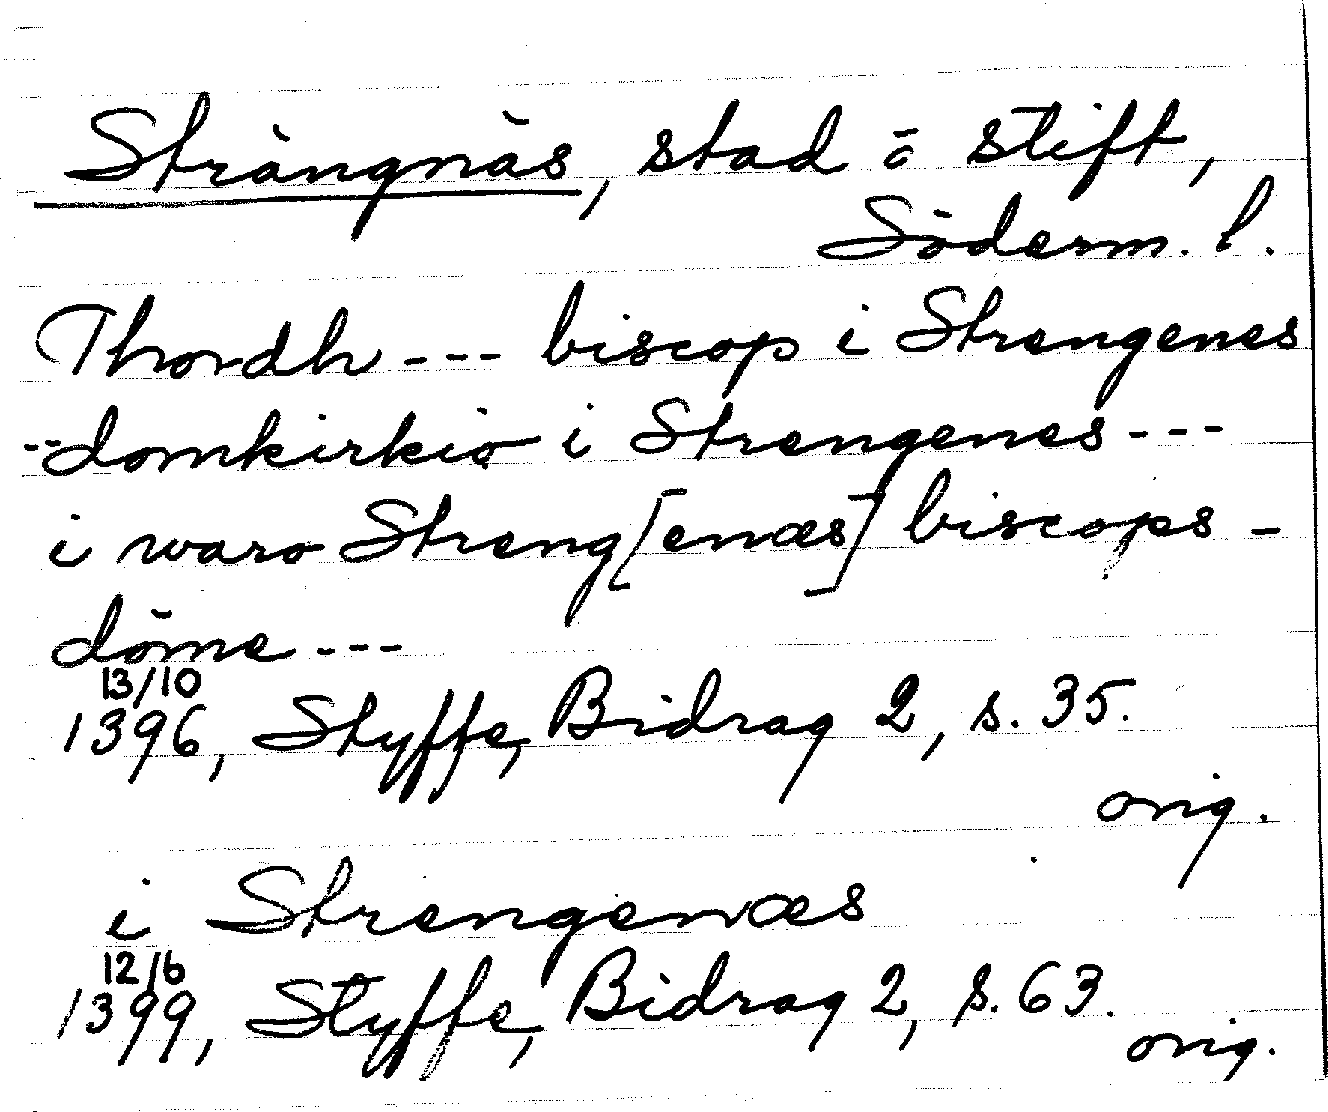 Strängnäs, stad o stift,
Söderm. l.
Thordh --- biscop i Strengenes
-- domkirkio i Strengenes ---
i waro Streng[enæs] biscops-
döme ---
13/10
1396, Styffe, Bidrag 2, s. 35.
orig.
i Strengenæs
12/6
1399, Styffe, Bidrag 2, s. 63.
orig.